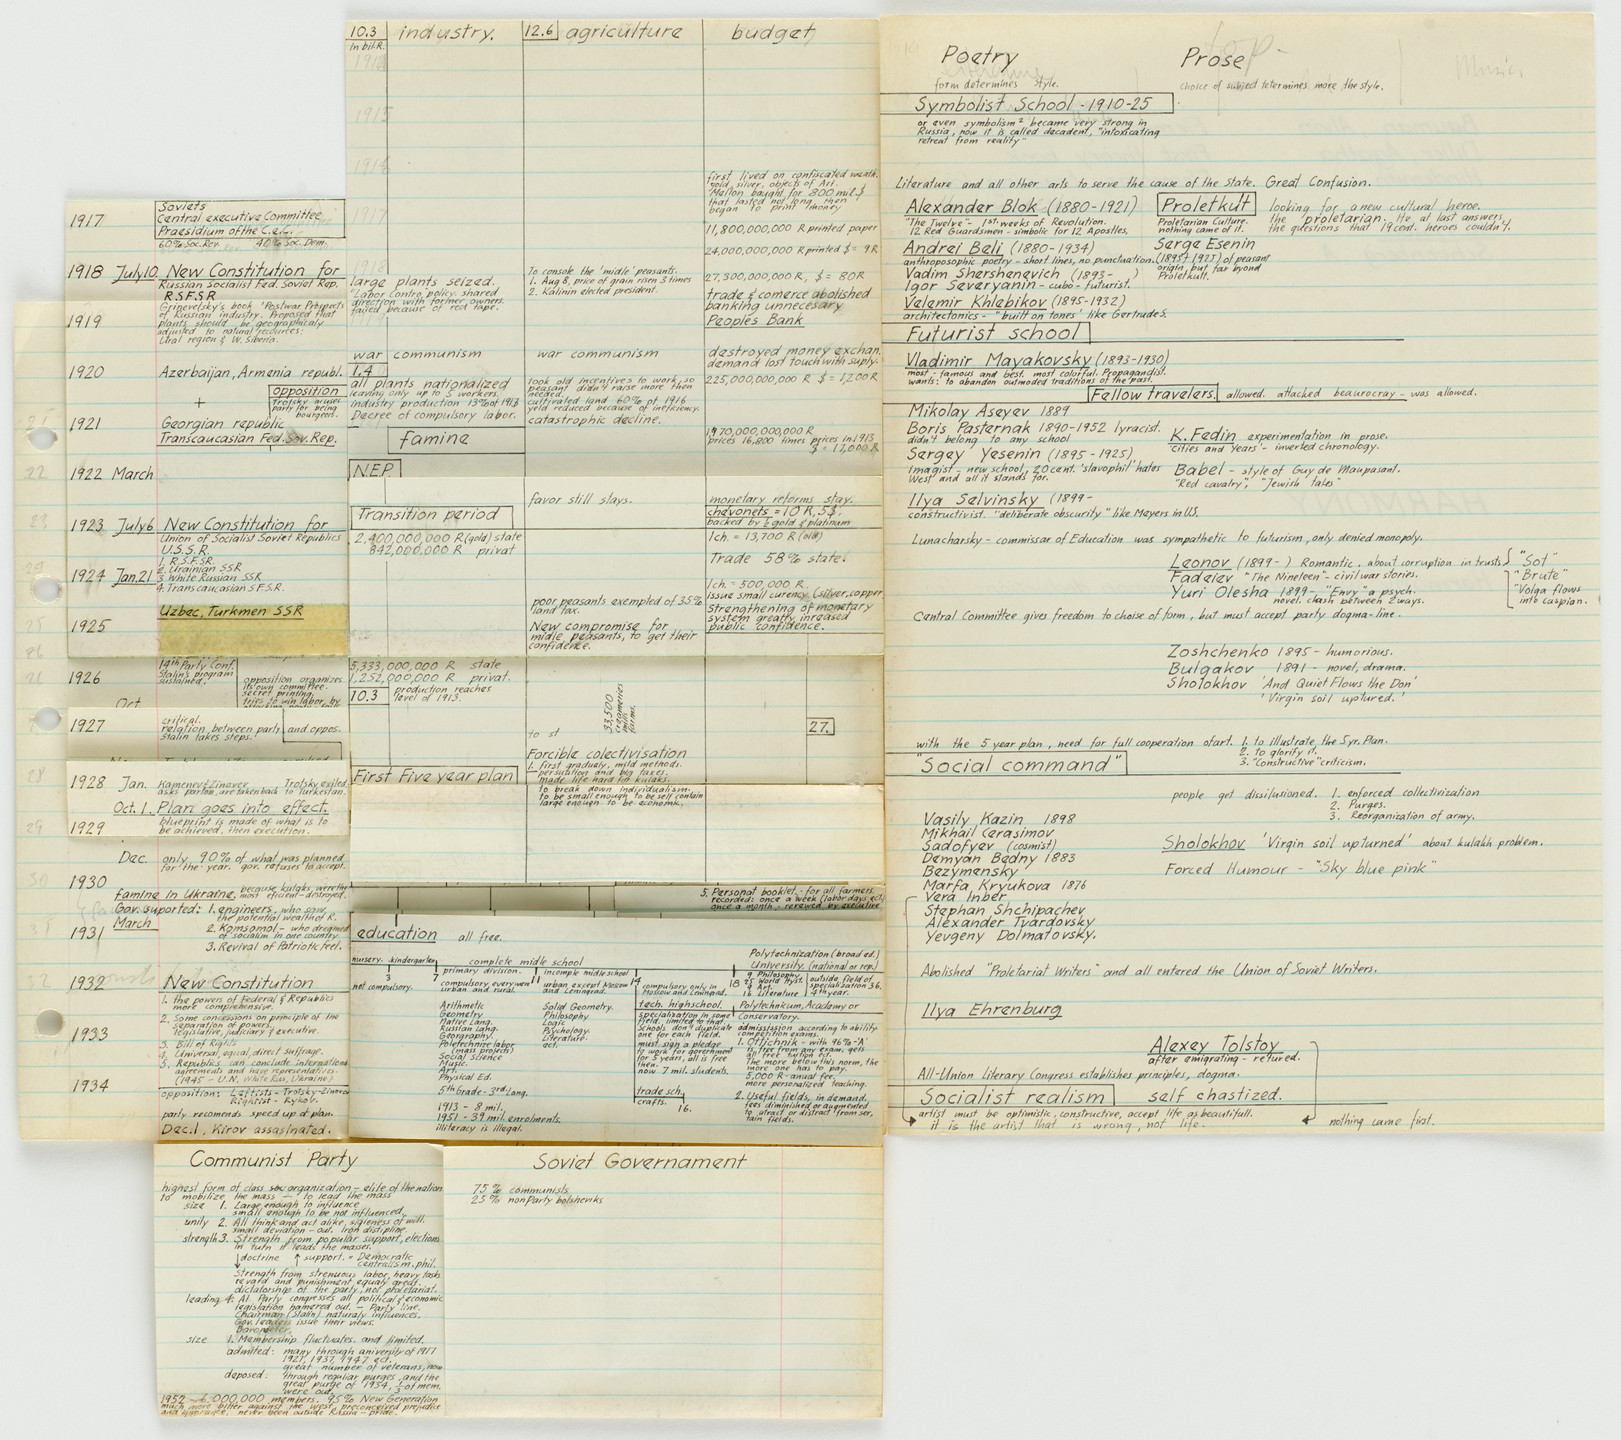 1917
Soviets
Central executive Committee
Praesidium of the C.e.C.
60% Soc. Rev. 40% Soc. Dem.
1918 July 10 New Constitution for
Russian Socialist Fed. Soviet Rep.
R.S.F.S.R
Grinevelsky's book 'Postwar Prospects
of Russian industry. Proposed that
plants should be geographicaly
adjusted to natural resources:
Ural region & W. Siberia.
1919
1920 Azerbaijan, Armenia republ.
+
opposition
Trotsky acuses
party for being
bourgeois.
1921 Georgian republic
Transcaucasian Fed. Sov. Rep.
1922 March
1923 July 6 New Constitution for
Union of Socialist Soviet Republics
U.S.S.R.
1. R.S.F.S.R.
2. Urainian SSR
3. White Russian SSR
4. Transcaucasian S.F.S.R.
1924 Jan. 21
Uzbec, Turkmen SSR
1925
1926
14th Party Conf.
Stalin's program
sustained.
opposition organizes
its own committee.
secret printing.
Oct
1927
critical.
relation between party and oppos.
Stalin takes steps.
1928 Jan. Kamenev & Zinover Trotsky exiled
asks pardon, are taken back to Turkestan.
Oct. 1. Plan goes into effect.
1929 blueprint is made of what is to
be achieved, then execution.
Dec. only 90% of what was planned
for the year. gov. refuses to accept.
1930
famine in Ukraine, because kulaks, were the
most eficient - destroyed.
Gov. suported: 1. engineers, who saw
the potential wealth of R.
March
2. Komsomol - who dreamed
of socialism in one country
3. Revival of Patriotic feel.
1931
1932 New Constitution
1. the powers of Federal & Republics
more comprehensive.
2. Some concessions on principle of the
separation of powers,
legislative, judiciary & executive.
1933
3. Bill of Rights
4. Universal, equal, direct suffrage.
5. Republics can conclude international
agreements and have representatives.
(1945 - U.N. White Rus, Ukraine)
1934
opposition: Leftists - Trotsky-Zinover
Rightist - Rykov.
party recomends speed up of plan.
Dec. 1, Kirov assasinated.
10.3 industry. 12.6 agriculture budget
in bil. R.
1914
1915
1916
1917
1918
first lived on confiscated wealth.
gold, silver, objects of Art.
Mellon bought for 800 mil. $
that lasted not long, then
began to print money
11,800,000,000 R printed paper
24,000,000,000 R printed $ = 9R
large plants seized.
'Labor Contro, policy. shared
direction with former owners.
failed because of red tape.
To console the 'midle' peasants.
1. Aug 8, price of grain risen 3 times
2. Kalinin elected president.
27,300,000,000 R, $ = 80R
trade & comerce abolished
banking unnecesary
Peoples Bank
war communism
1.4
all plants nationalized
leaving only up to 5 workers.
industry production 13% of 1913
Decree of compulsory labor.
war communism
took old incentives to work, so
peasant didn't raise more then
needed.
cultivated land 60% of 1916
yeld reduced because of ineficiency.
catastrophic decline.
destroyed money exchan.
demand lost touch with suply.
225,000,000,000 R $ = 1,200 R
1970,000,000,000 R
prices 16,800 times prices in 1913
$ = 17,000 R
famine
N.E.P.
favor still stays.
monetary reforms stay.
Transition period
2.400,000,000 R (gold) state
842,000,000 R privat
chevonets = 10 R, 5$.
backed by ½ gold & platinum
1ch. = 13,700 R (old)
Trade 58% state!
1ch. = 500,000 R.
issue small curency (silver, copper
Strengthening of monetary
system greatly inreased
public confidence.
poor peasants exempted of 35%
land tax.
New compromise for
midle peasants, to get their
confidence.
5,333,000,000 R state
1,252,000,000 R privat.
10.3 production reaches
level of 1913.
33,500
creameries
mills
farms.
to st
27.
Forcible colectivisation
1. first gradualy, mild methods.
persuation and big taxes.
made life hard for kulaks.
First Five year plan
to break down individualism.
To be small enough to be self contain
large enough to be economic.
5. Personat booklet - for all farmers
recorded: once a week (labor days, ect)
once a month - rewewed by executive
education all free.
nursery. kindergarten complete midle school
3 7 11 14 18
primary division. incomple midle school
not compulsory. compulsory, everywere
urban and rural.
urban except Moscow
and Leningrad.
compulsory only in
Moscow and Leningrad.
Arithmetic
Geometry
Native Lang.
Russian Lang.
Georgraphy.
Politechnic labor
(mass projects)
Social Science
Music.
Art.
Physical Ed.
5th Grade - 3rd Lang.
1913 - 8 mil.
1951 - 39 mil. enrolments.
illiteracy is illegal.
Solid Geometry.
Philosophy
Logic
Psychology.
Literature.
act.
tech. highschool.
specialization in some
field, limited to that.
Schools don't duplicate
one for each field.
must sign a pledge
to work for government
for 5 years, all is free
then.
now 7 mil. students.
trade sch.
crafts. 16.
Polytechnization (broad ed.)
University. (national or rep.)
9 Philosophy
25 World Hyst.
9 Art.
16 Literature
outside field of
specialization 36.
4th year.
Polytechnicum, Academy or
Conservatory.
admission according to ability
competition exams.
1. Otlichnik - with 96% 'A'
is free from any exam, gets
all free tution ect.
The more below this norm, the
more one has to pay.
5,000 R - anual fee.
more personalized teaching.
2. Useful fields, in demand.
fees diminished or augmented
to atract or distract from ser,
tain fields.
Poetry
form determines style.
Prose
choice of subject determines more the style.
Symbolist School - 1910-25
or even symbolism² became very strong in
Russia, now it is called decadent, "intoxicating
retreat from reality"
Literature and all other arts to serve the cause of the State. Great Confusion.
Alexander Blok (1880-1921)
"The Twelve" - 1st. weeks of Revolution.
12 Red Guardsmen - simbolic for 12 Apostles.
Proletkult looking for a new cultural heroe.
Proletarian Culture. the 'proletarian. He, at last answers
nothing came of it. the questions that 19 cent. heroes couldn't.
Andrei Beli (1880-1934)
anthroposophic poetry - short lines, no punctuation.
Serge Esenin
(1895-1925) of peasant
origin, but far byond
Proletkult.
Vadim Shershenevich (1893- )
Igor Severyanin - cubo-futurist.
Velemir Khlebikov (1895-1932)
architectonics - "built on tones' like Gertrude S.
Futurist school
Vladimir Mayakovsky (1893-1930)
most famous and best. most colorful. Propagandist.
wants: to abandon outmoded traditions of the past.
Fellow travelers. allowed. attached beaurocray - was allowed.
Mikolay Aseyev 1889
Boris Pasternak 1890-1952 lyracist.
didn't belong to any school
Sergey Yesenin (1895-1925)
Imagist - new school, 20 cent. 'slavophil' hates
West and all it stands for.
K. Fedin experimentation in prose.
'Cities and Years' - inverted chronology.
Babel - style of Guy de Maupasant.
"Red cavalry", "Jewish tales"
Ilya Selvinsky (1899-
constructivist. "deliberate obscurity" like Meyers in US.
Lunacharsky - commissar of Education was sympathetic to futurism, only denied monopoly.
Leonov (1899- ) Romantic, about corruption in trusts "Sot"
Fadeiev "The Nineteen" - civil war stories. "Brute"
Yuri Olesha 1899- "Envy" a psych.
novel. clash between 2 ways.
"Volga flows
into Caspian.
Central Committee gives freedom to choise of form, but must accept party dogma-line.
Zoshchenko 1895 - humorious.
Bulgakov 1891 - novel, drama.
Sholokhov 'And Quiet Flows the Don'
'Virgin soil uptured.'
with the 5 year plan, need for full cooperation of art. 1. to illustrate the 5 yr. Plan.
2. to glorify it.
3. "constructive" criticism.
"Social command"
people get dissilusioned. 1. enforced collectivization
2. Purges.
3. Reorganization of army.
Vasily Kazin 1898
Mikhail Gerasimov
Sadofyev (cosmist)
Demyan Bedny 1883
Bezymensky
Marfa Kryukova 1876
Vera Inber
Stephan Shchipachev
Alexander Tvardovsky
Yevgeny Dolmatovsky.
Sholokhov 'Virgin soil upturned' about kulakh problem.
Forced Humour - "Sky blue pink"
Abolished "Proletariat Writers" and all entered the Union of Soviet Writers.
Ilya Ehrenburg
Alexey Tolstoy
after emigrating - retured.
All-Union Literary Congress establishes principles, dogma.
Socialist realism self chastized.
artist must be optimistic, constructive, accept life as beautifull.
it is the artist that is wrong, not life.
nothing came first.
Communist Party
highest form of class soc organization - elite of the nation
to mobilize the mass - to lead the mass
size 1. Large enough to influence
small enough to be not influenced.
unity 2. All think and act alike, sigleness of will.
small deviation - out. Iron distipline.
strength 3. Strength from popular support, elections
in turn it leads the masses.
doctrine support. = Democratic
centralism. phil.
Strength from strenuous labor, heavy tasks
revard and punishment, equaly great.
dictatorship of the party, not proletariat.
leading 4. At Party congresses all political & economic
legislation hamered out. - Party line.
Chairman (Stalin) naturaly influences.
Gov. leaders issue their views.
Barometer.
size 1. Membership fluctuates. and limited.
admited: many through university of 1917
1921, 1937, 1947 ect.
great number of veterans, now
deposed: through regular purges, and the
great purge of 1934, ⅓ of mem.
were out.
1952 - 6,000,000 members. 95% New Generation
much more bitter against the West, preconceived prejudice
and ignorance, never been outside Russia - pride.
Soviet Governament
75% communists
25% nonParty bolsheviks